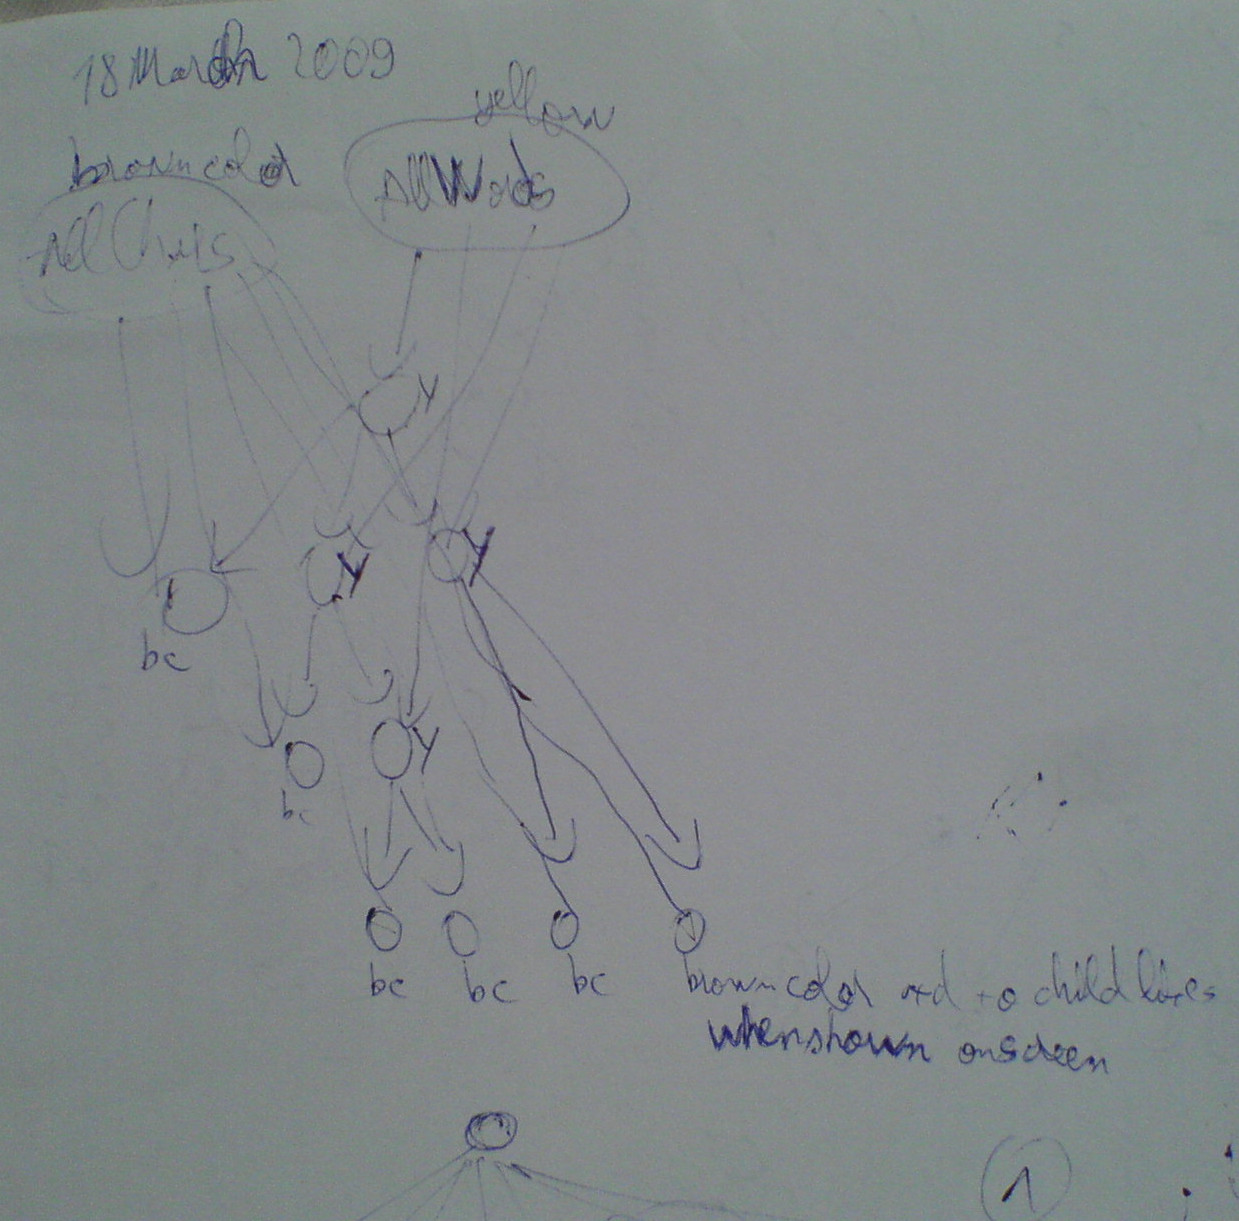 18 March 2009
yellow
brown color
All Words
All Chars
y
y
y
bc
y
bc
bc
bc
bc
brown color and to child lines
when shown onscreen
1